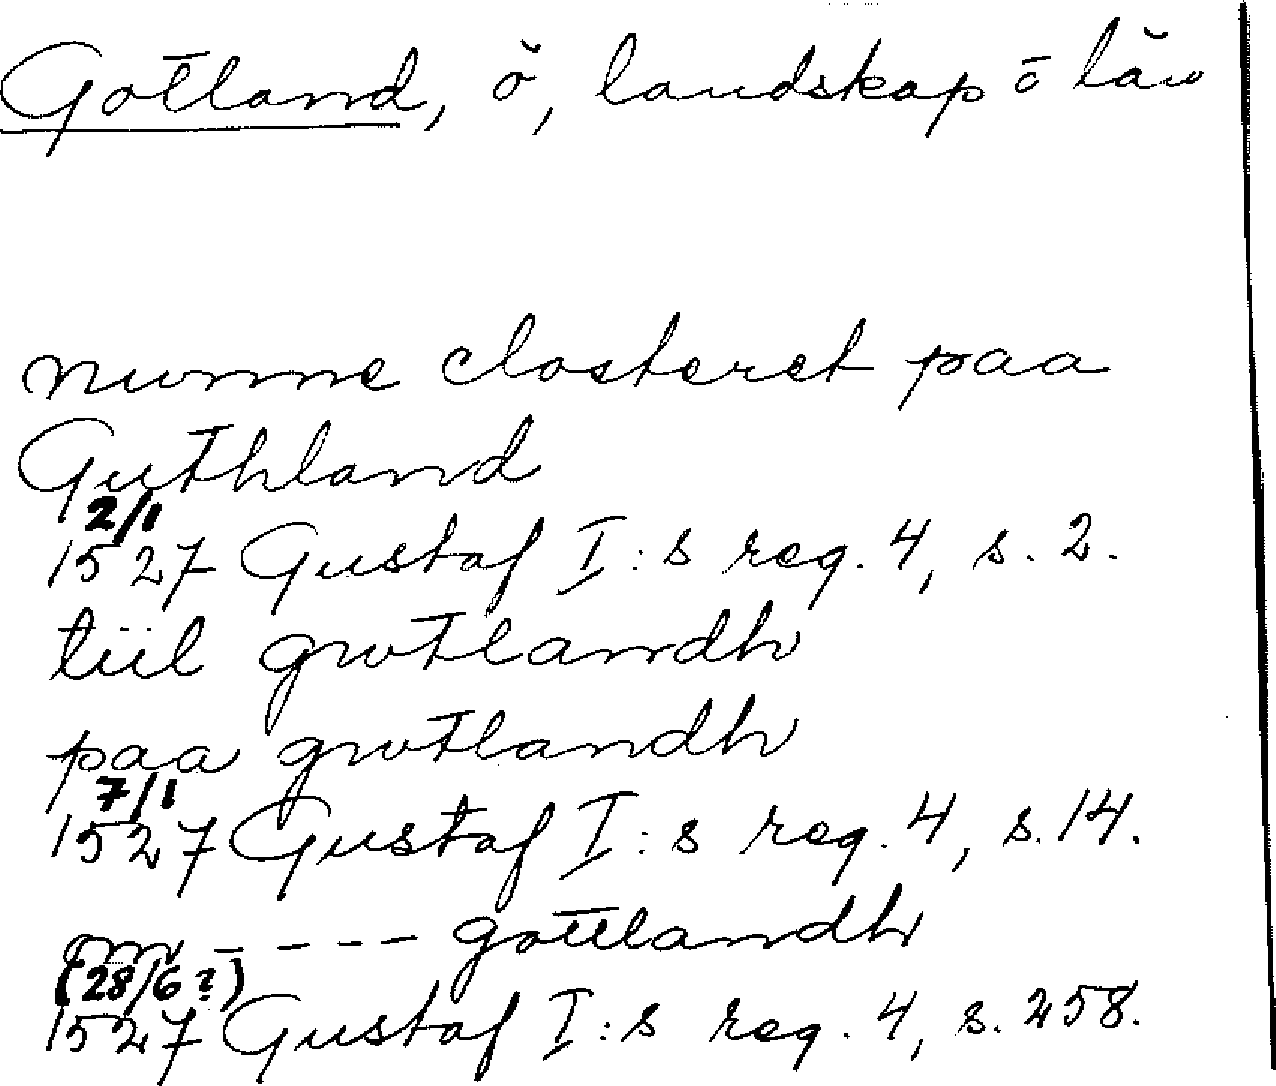 Gotland, ö, landskap o län
nunne closteret paa
Guthland
2/1
1527 Gustaf I:s reg. 4, s. 2.
tiil gwtlandh
paa gwtlandh
7/1
1527 Gustaf I:s reg. 4, s. 14.
om - - - - gottlandh
(28/6?)
1527 Gustaf I:s reg. 4, s. 258.